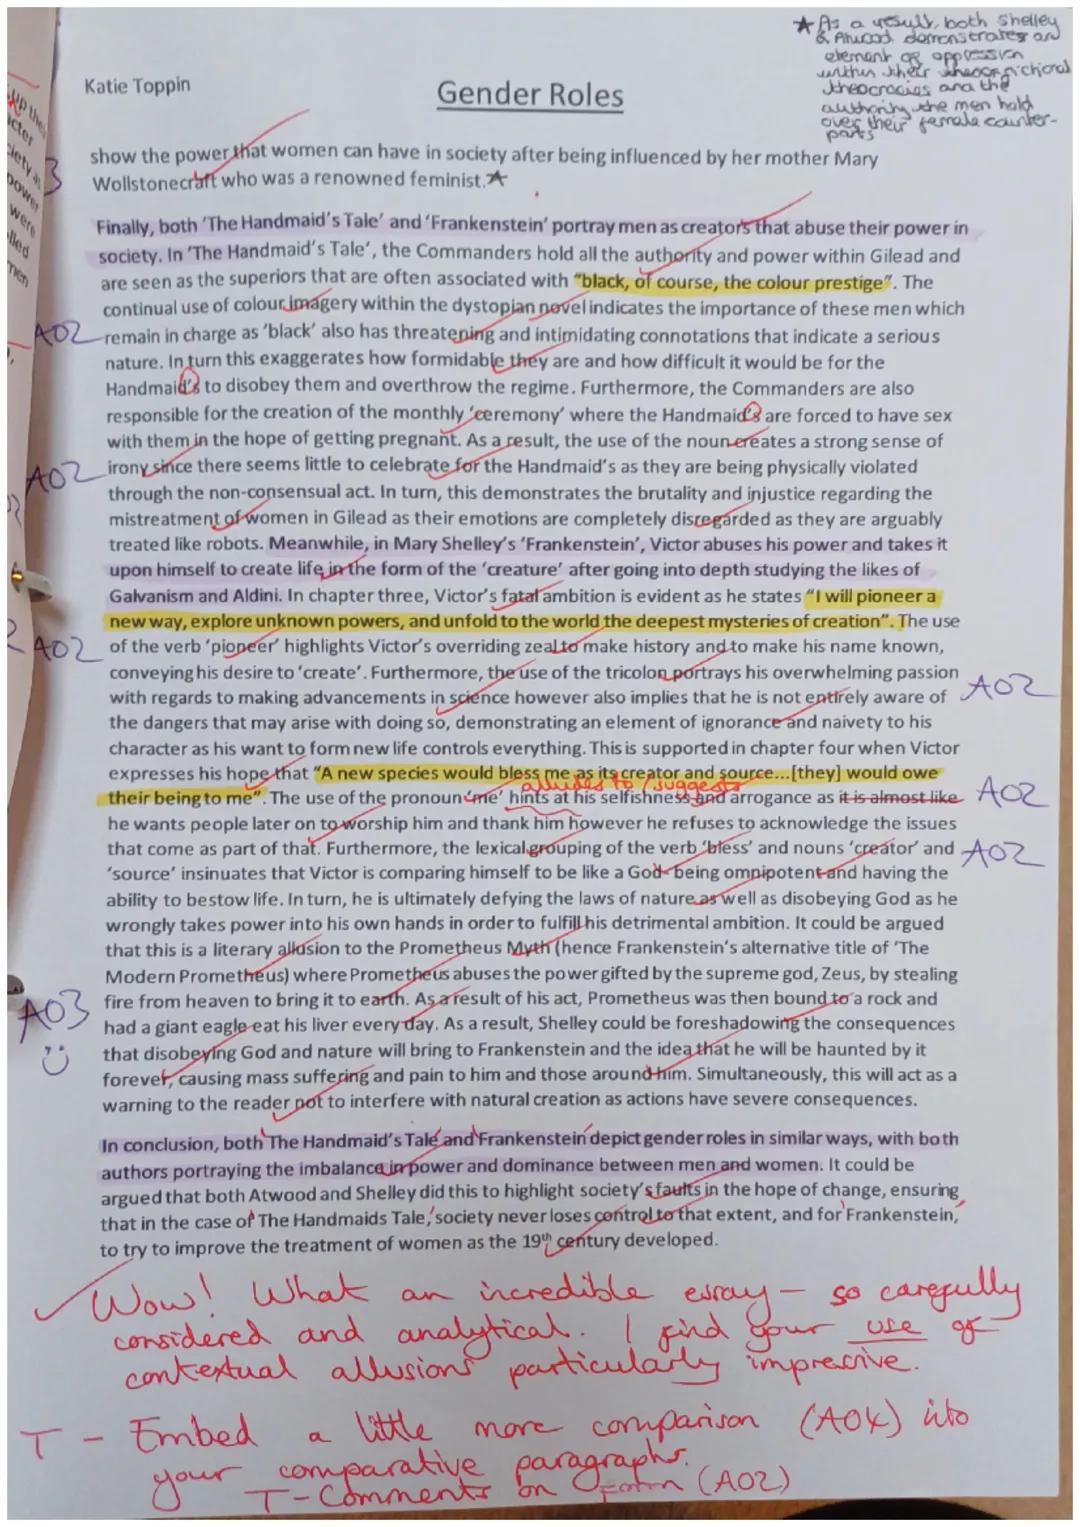 ★ As a result, both Shelley
& Atwood demonstrates an
element of oppression
within their fictional
theocracies and the
authority the men hold
over their female counter-
parts
Katie Toppin
Gender Roles
show the power that women can have in society after being influenced by her mother Mary
Wollstonecraft who was a renowned feminist.★
Finally, both 'The Handmaid's Tale' and 'Frankenstein' portray men as creators that abuse their power in
society. In 'The Handmaid's Tale', the Commanders hold all the authority and power within Gilead and
are seen as the superiors that are often associated with "black, of course, the colour prestige". The
continual use of colour imagery within the dystopian novel indicates the importance of these men which
AO2 remain in charge as 'black' also has threatening and intimidating connotations that indicate a serious
nature. In turn this exaggerates how formidable they are and how difficult it would be for the
Handmaid's to disobey them and overthrow the regime. Furthermore, the Commanders are also
responsible for the creation of the monthly 'ceremony' where the Handmaid's are forced to have sex
with them in the hope of getting pregnant. As a result, the use of the noun creates a strong sense of
AO2 irony since there seems little to celebrate for the Handmaid's as they are being physically violated
through the non-consensual act. In turn, this demonstrates the brutality and injustice regarding the
mistreatment of women in Gilead as their emotions are completely disregarded as they are arguably
treated like robots. Meanwhile, in Mary Shelley's 'Frankenstein', Victor abuses his power and takes it
upon himself to create life in the form of the 'creature' after going into depth studying the likes of
Galvanism and Aldini. In chapter three, Victor's fatal ambition is evident as he states "I will pioneer a
new way, explore unknown powers, and unfold to the world the deepest mysteries of creation". The use
AO2 of the verb 'pioneer' highlights Victor's overriding zeal to make history and to make his name known,
conveying his desire to 'create'. Furthermore, the use of the tricolon portrays his overwhelming passion
with regards to making advancements in science however also implies that he is not entirely aware of AO2
the dangers that may arise with doing so, demonstrating an element of ignorance and naivety to his
character as his want to form new life controls everything. This is supported in chapter four when Victor
expresses his hope that "A new species would bless me as its creator and source...[they] would owe
alludes to / suggests
their being to me". The use of the pronoun 'me' hints at his selfishness and arrogance as it is almost like AO2
he wants people later on to worship him and thank him however he refuses to acknowledge the issues
that come as part of that. Furthermore, the lexical grouping of the verb 'bless' and nouns 'creator' and AO2
'source' insinuates that Victor is comparing himself to be like a God- being omnipotent and having the
ability to bestow life. In turn, he is ultimately defying the laws of nature as well as disobeying God as he
wrongly takes power into his own hands in order to fulfill his detrimental ambition. It could be argued
that this is a literary allusion to the Prometheus Myth (hence Frankenstein's alternative title of 'The
Modern Prometheus) where Prometheus abuses the power gifted by the supreme god, Zeus, by stealing
AO3 fire from heaven to bring it to earth. As a result of his act, Prometheus was then bound to a rock and
had a giant eagle eat his liver every day. As a result, Shelley could be foreshadowing the consequences
that disobeying God and nature will bring to Frankenstein and the idea that he will be haunted by it
forever, causing mass suffering and pain to him and those around him. Simultaneously, this will act as a
warning to the reader not to interfere with natural creation as actions have severe consequences.
In conclusion, both 'The Handmaid's Tale' and 'Frankenstein' depict gender roles in similar ways, with both
authors portraying the imbalance in power and dominance between men and women. It could be
argued that both Atwood and Shelley did this to highlight society's faults in the hope of change, ensuring
that in the case of 'The Handmaids Tale,' society never loses control to that extent, and for 'Frankenstein,'
to try to improve the treatment of women as the 19th century developed.
Wow! What an incredible essay - so carefully
considered and analytical. I find your use of
contextual allusions particularly impressive.
T - Embed a little more comparison (AO4) into
your comparative paragraphs.
T - Comments on Form (AO2)